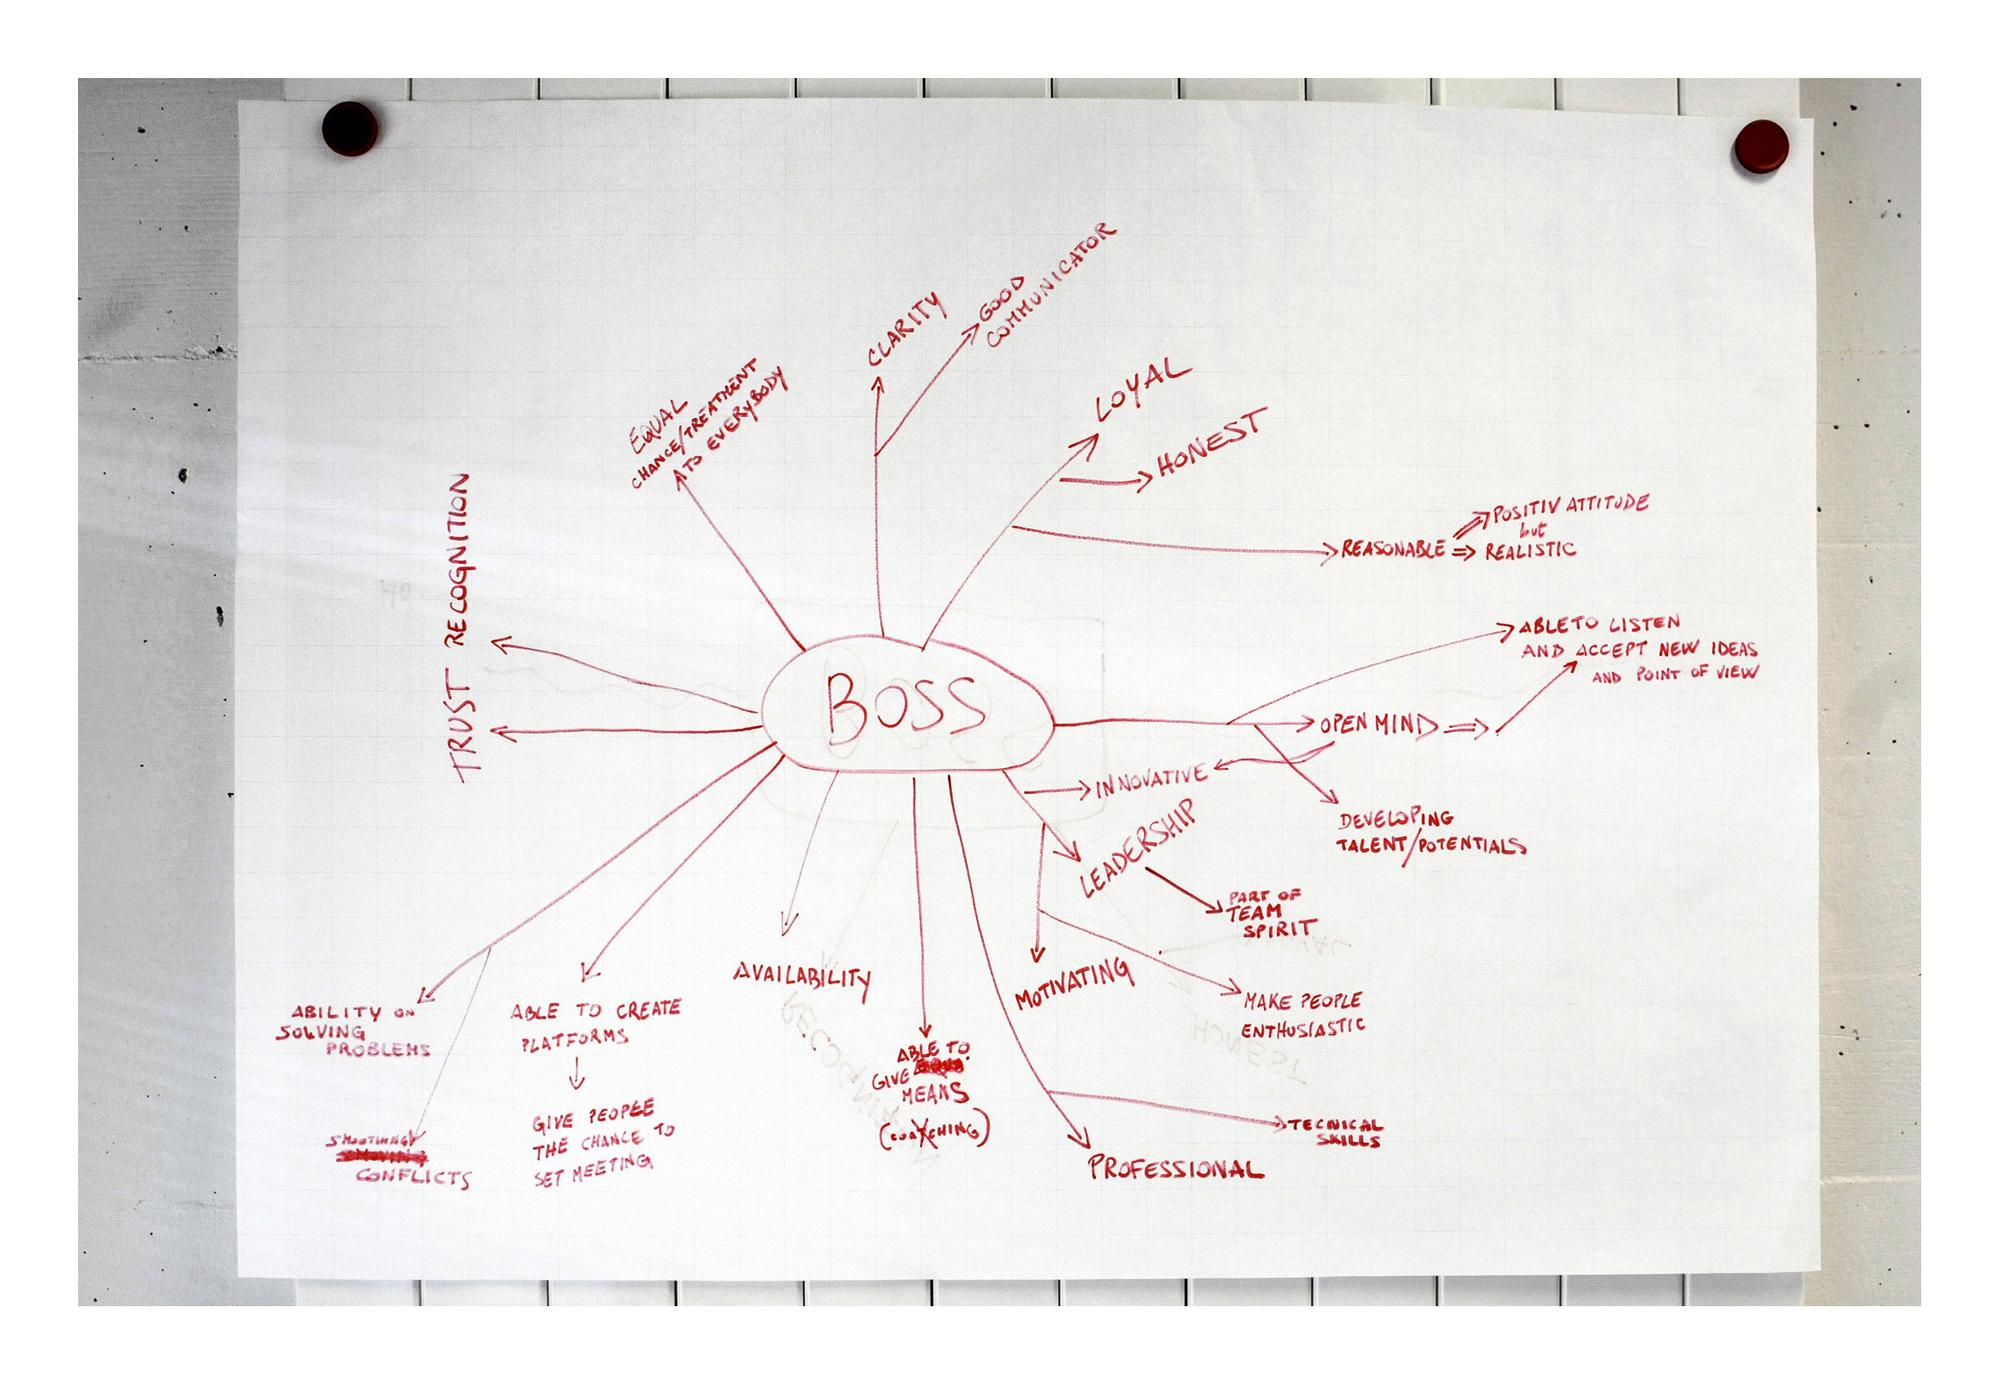 GOOD
COMMUNICATOR
CLARITY
LOYAL
HONEST
EQUAL
CHANCE/TREATMENT
TO EVERYBODY
TRUST RECOGNITION
REASONABLE
POSITIV ATTITUDE
but
REALISTIC
ABLE TO LISTEN
AND ACCEPT NEW IDEAS
AND POINT OF VIEW
BOSS
OPEN MIND
INNOVATIVE
DEVELOPING
TALENT/POTENTIALS
LEADERSHIP
PART OF
TEAM
SPIRIT
MOTIVATING
MAKE PEOPLE
ENTHUSIASTIC
AVAILABILITY
ABILITY ON
SOLVING
PROBLEMS
ABLE TO CREATE
PLATFORMS
GIVE PEOPLE
THE CHANCE TO
SET MEETING
ABLE TO
GIVE
MEANS
SMOOTHING
CONFLICTS
TECNICAL
SKILLS
PROFESSIONAL